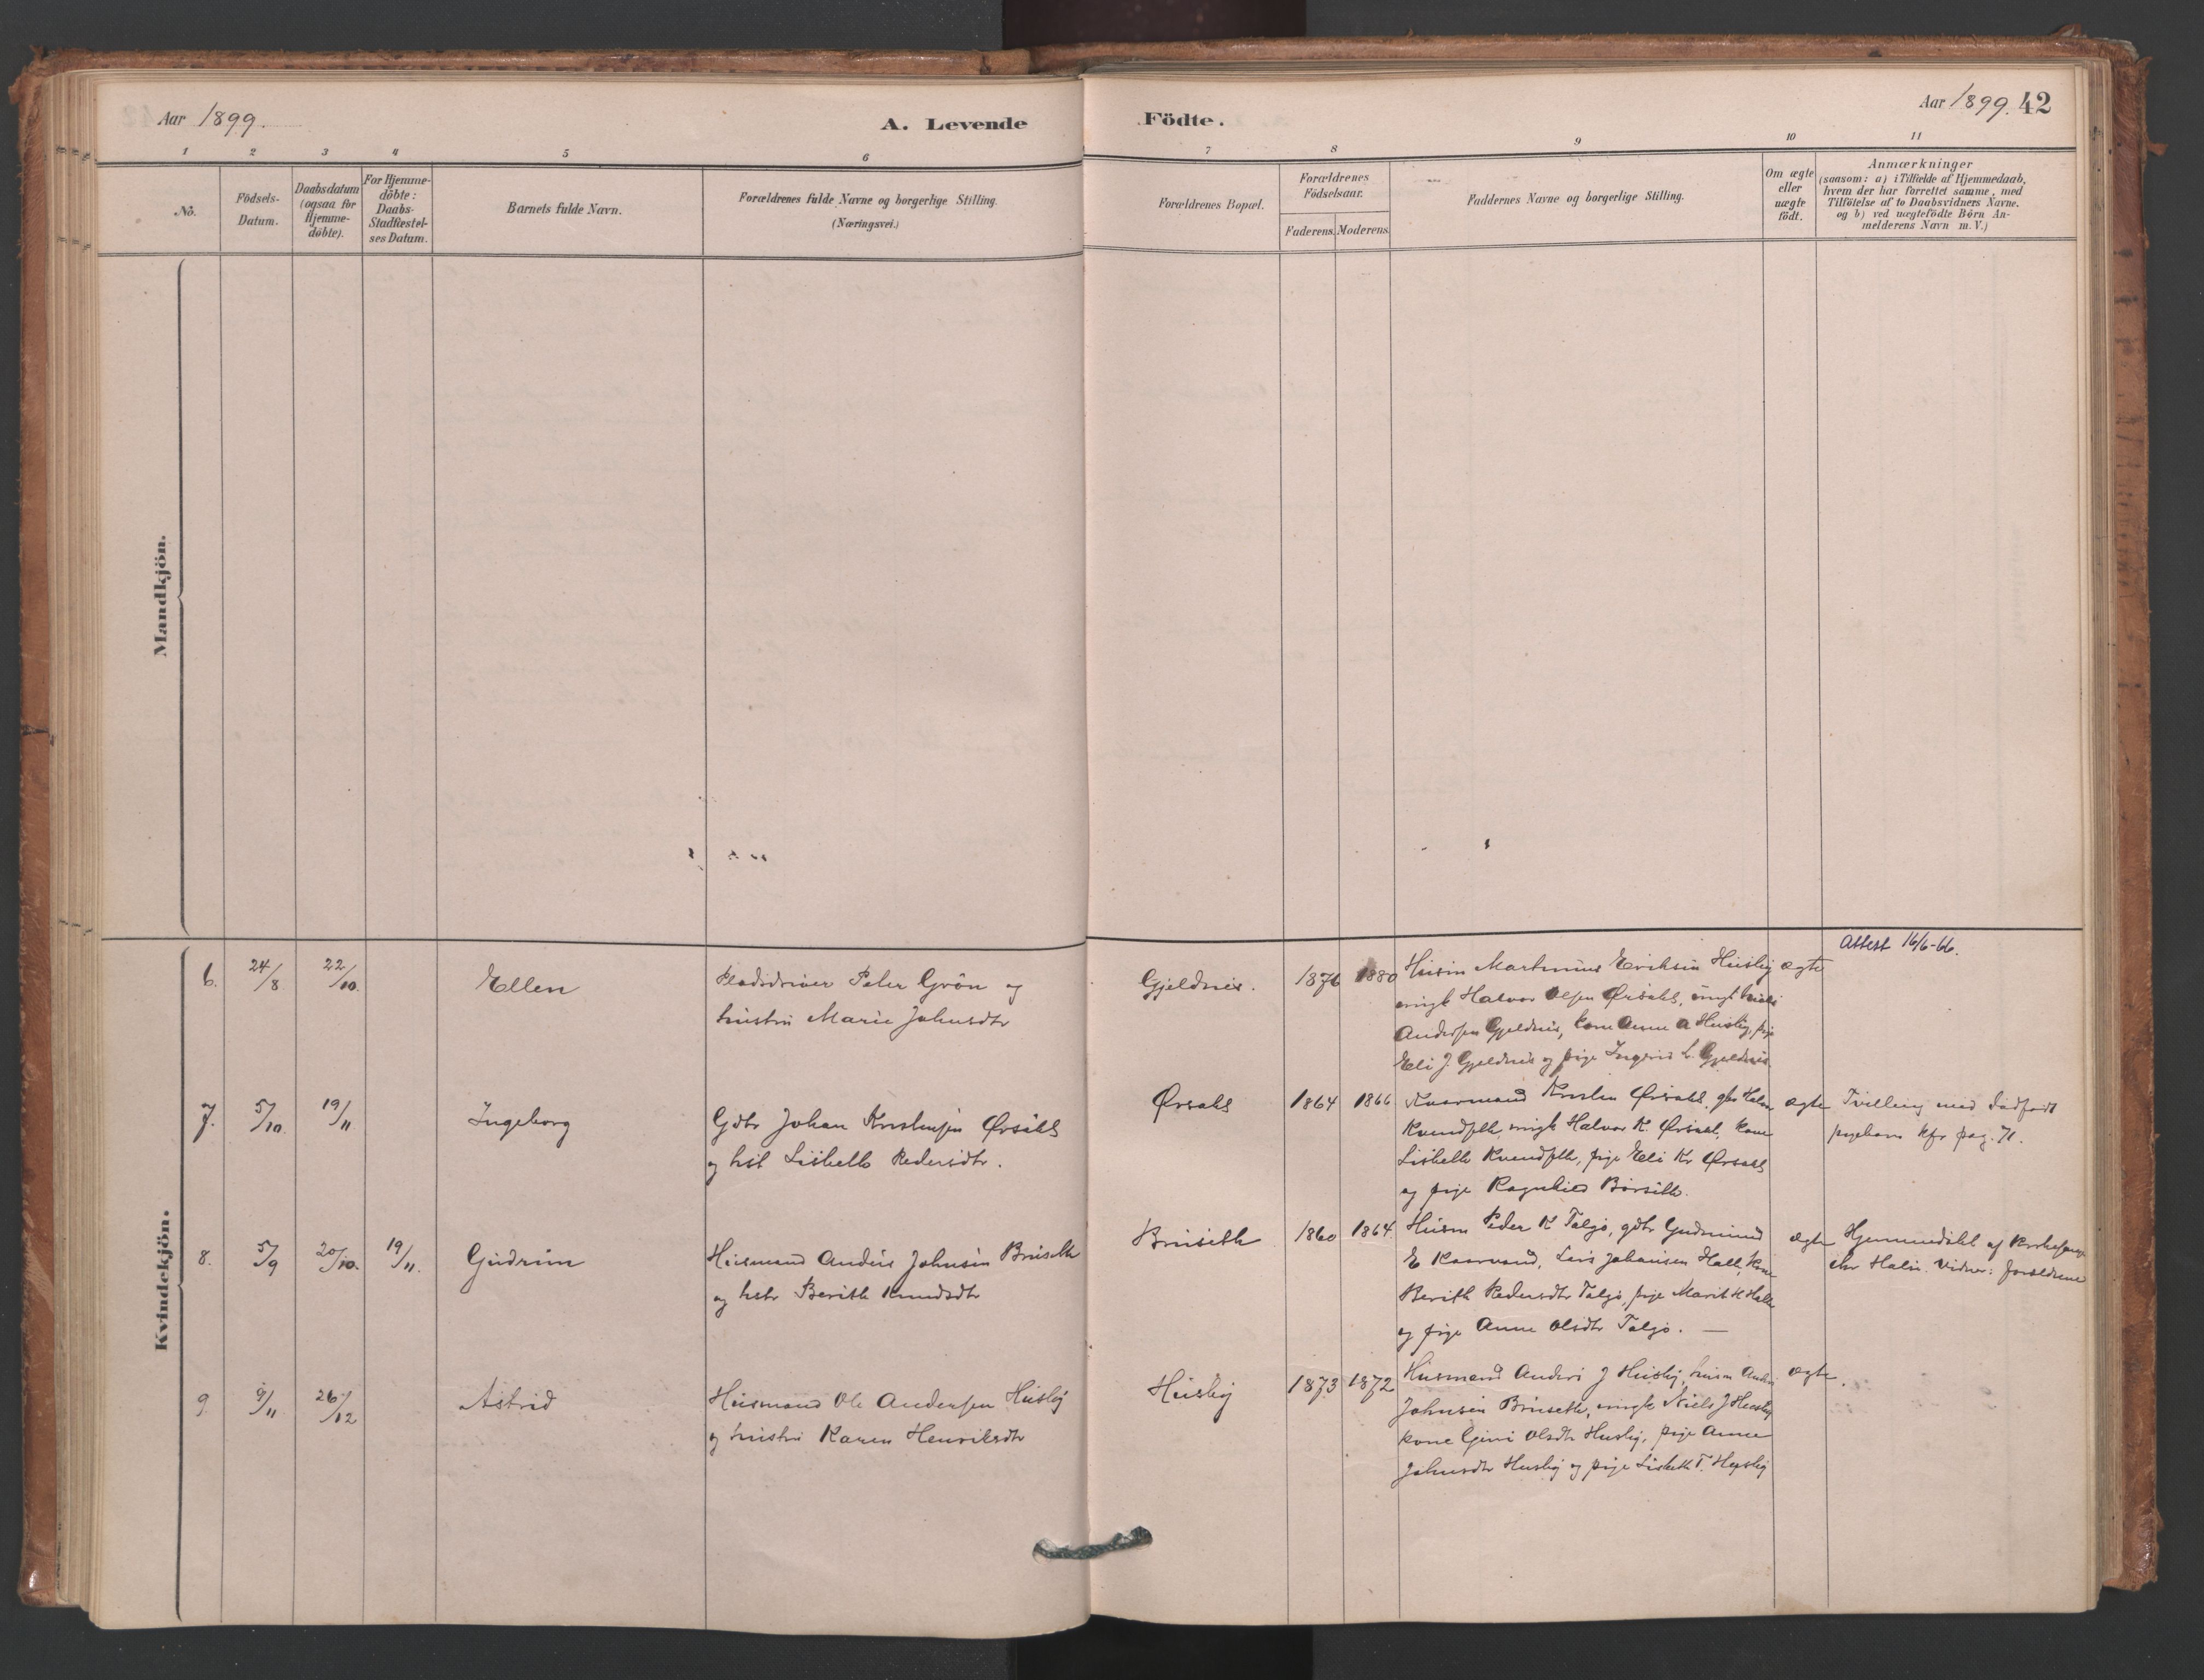 Aar 1899.
A. Levende
Födte.
Aar 1899. 42
1 2 3 4 5 6 7 8 9 10 11
No.
Födsels-
Datum.
Daabsdatum
(ogsaa for
Hjemme-
döbte).
For Hjemme-
döbte:
Daabs-
Stadfæstel-
ses Datum.
Barnets fulde Navn.
Forældrenes fulde Navne og borgerlige Stilling.
(Næringsvei.)
Forældrenes Bopæl.
Forældrenes
Födselsaar.
Faderens. Moderens.
Faddernes Navne og borgerlige Stilling.
Om ægte
eller
uægte
födt.
Anmærkninger
(saasom: a) i Tilfælde af Hjemmedaab,
hvem der har forrettet samme, med
Tilföielse af to Daabsvidners Navne.
og b) ved uægtefödte Börn An-
melderens Navn m. V.)
Mandkjön.
Kvindekjön.
6. 24/8 22/10. Ellen
Pladsdriver Peter Grön og
hustru Marie Johnsdtr
Gjeldnes. 1876 1880
Husm Martinus Eriksen Husby
ungk Halvor Olsen Ørsahl, ungk
Andersen Gjeldnes, kone Anne A Husby, pige
Eli J. Gjeldnes og pige Ingerid L. Gjeldnes
ægte
Attest 16/6-66.
7. 5/10. 19/11 Ingeborg
Gdbr Johan Kristensen Ørsahl
og hst Lisbeth Pedersdtr.
Ørsahl 1864 1866
Kaarmand Kristen Ørsahl, gbr Halvor
ungk Halvor K. Ørsahl, kone
Lisbeth pige Eli Kr Ørsahl
og pige Ragnhild
ægte
Tvilling med dødfødt
pigebarn kfr pag. 71.
8. 5/9 20/10. 19/11. Gudrun
Husmand Anders Johnsen Bruseth
og hstr Berith Knudsdtr
Bruseth 1860 1864
Husm Peder K Talgø, gdbr Gudmund
E Kaarvand, Lars Johansen Halle, kone
Berith Pedersdtr Talgø, pige Marit H Halle
og pige Anne Olsdtr Talgø. —
ægte
Hjemmedøbt af Kirkesanger
Halse. Vidner: forældrene
9. 9/11 26/12 Astrid
Husmand Ole Andersen Husby
og hustru Karen Henriksdtr
Husby 1873 1872
Husmand Anders J Husby, husm Anders
Johnsen Bruseth, ungk Niels J Husby
kone Guri Olsdtr Husby, pige Anne
Johnsdtr Husby og pige Lisbeth T. Husby
ægte.